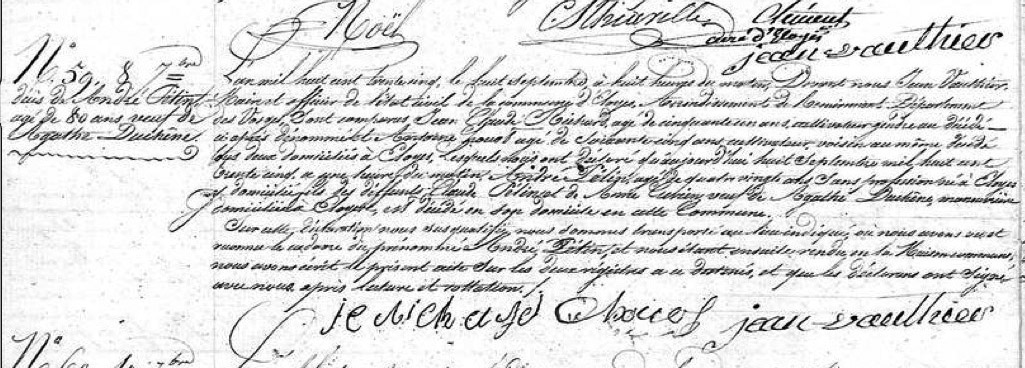 Noël
Thiriville Clément
curé d'Eloyes
jean vauthier
N° 59. 8 7bre
décès de André Petin,
agé de 80 ans veuf de
Agathe Duchène.
L'an mil huit cent trente cinq, le huit Septembre à huit heures du matin, Devant nous Jean Vauthier,
Maire et officier de l'état civil de la commune d'Eloyes, Arrondissement de Remiremont, Département
des Vosges, sont comparus Jean Claude Richard, agé de cinquante un ans, cultivateur gendre au décédé
ci après dénommé et agé de soixante cinq ans cultivateur, voisin au même décédé
tous deux domiciliés à Eloyes, lesquels nous ont déclaré qu'aujourd'hui huit Septembre mil huit cent
trente cinq, a heure du matin, André Petin, agé de quatre vingts ans, sans profession né à Eloyes
y domicilié, des défunts Claude Petin et de Marie veuf de Agathe Duchène, manouvrière
domiciliée à Eloyes, est décédé en son domicile en cette Commune.
Sur cette déclaration nous susqualifié, nous sommes transporté au lieu indiqué, où nous avons vu et
reconnu le cadavre du prénommé André Petin, et nous étant ensuite rendu en la Maison commune,
nous avons écrit le présent acte sur les deux registres a ce destinés, et que les déclarans ont signé
avec nous après lecture et collation.
jean vauthier
N° 60 7bre